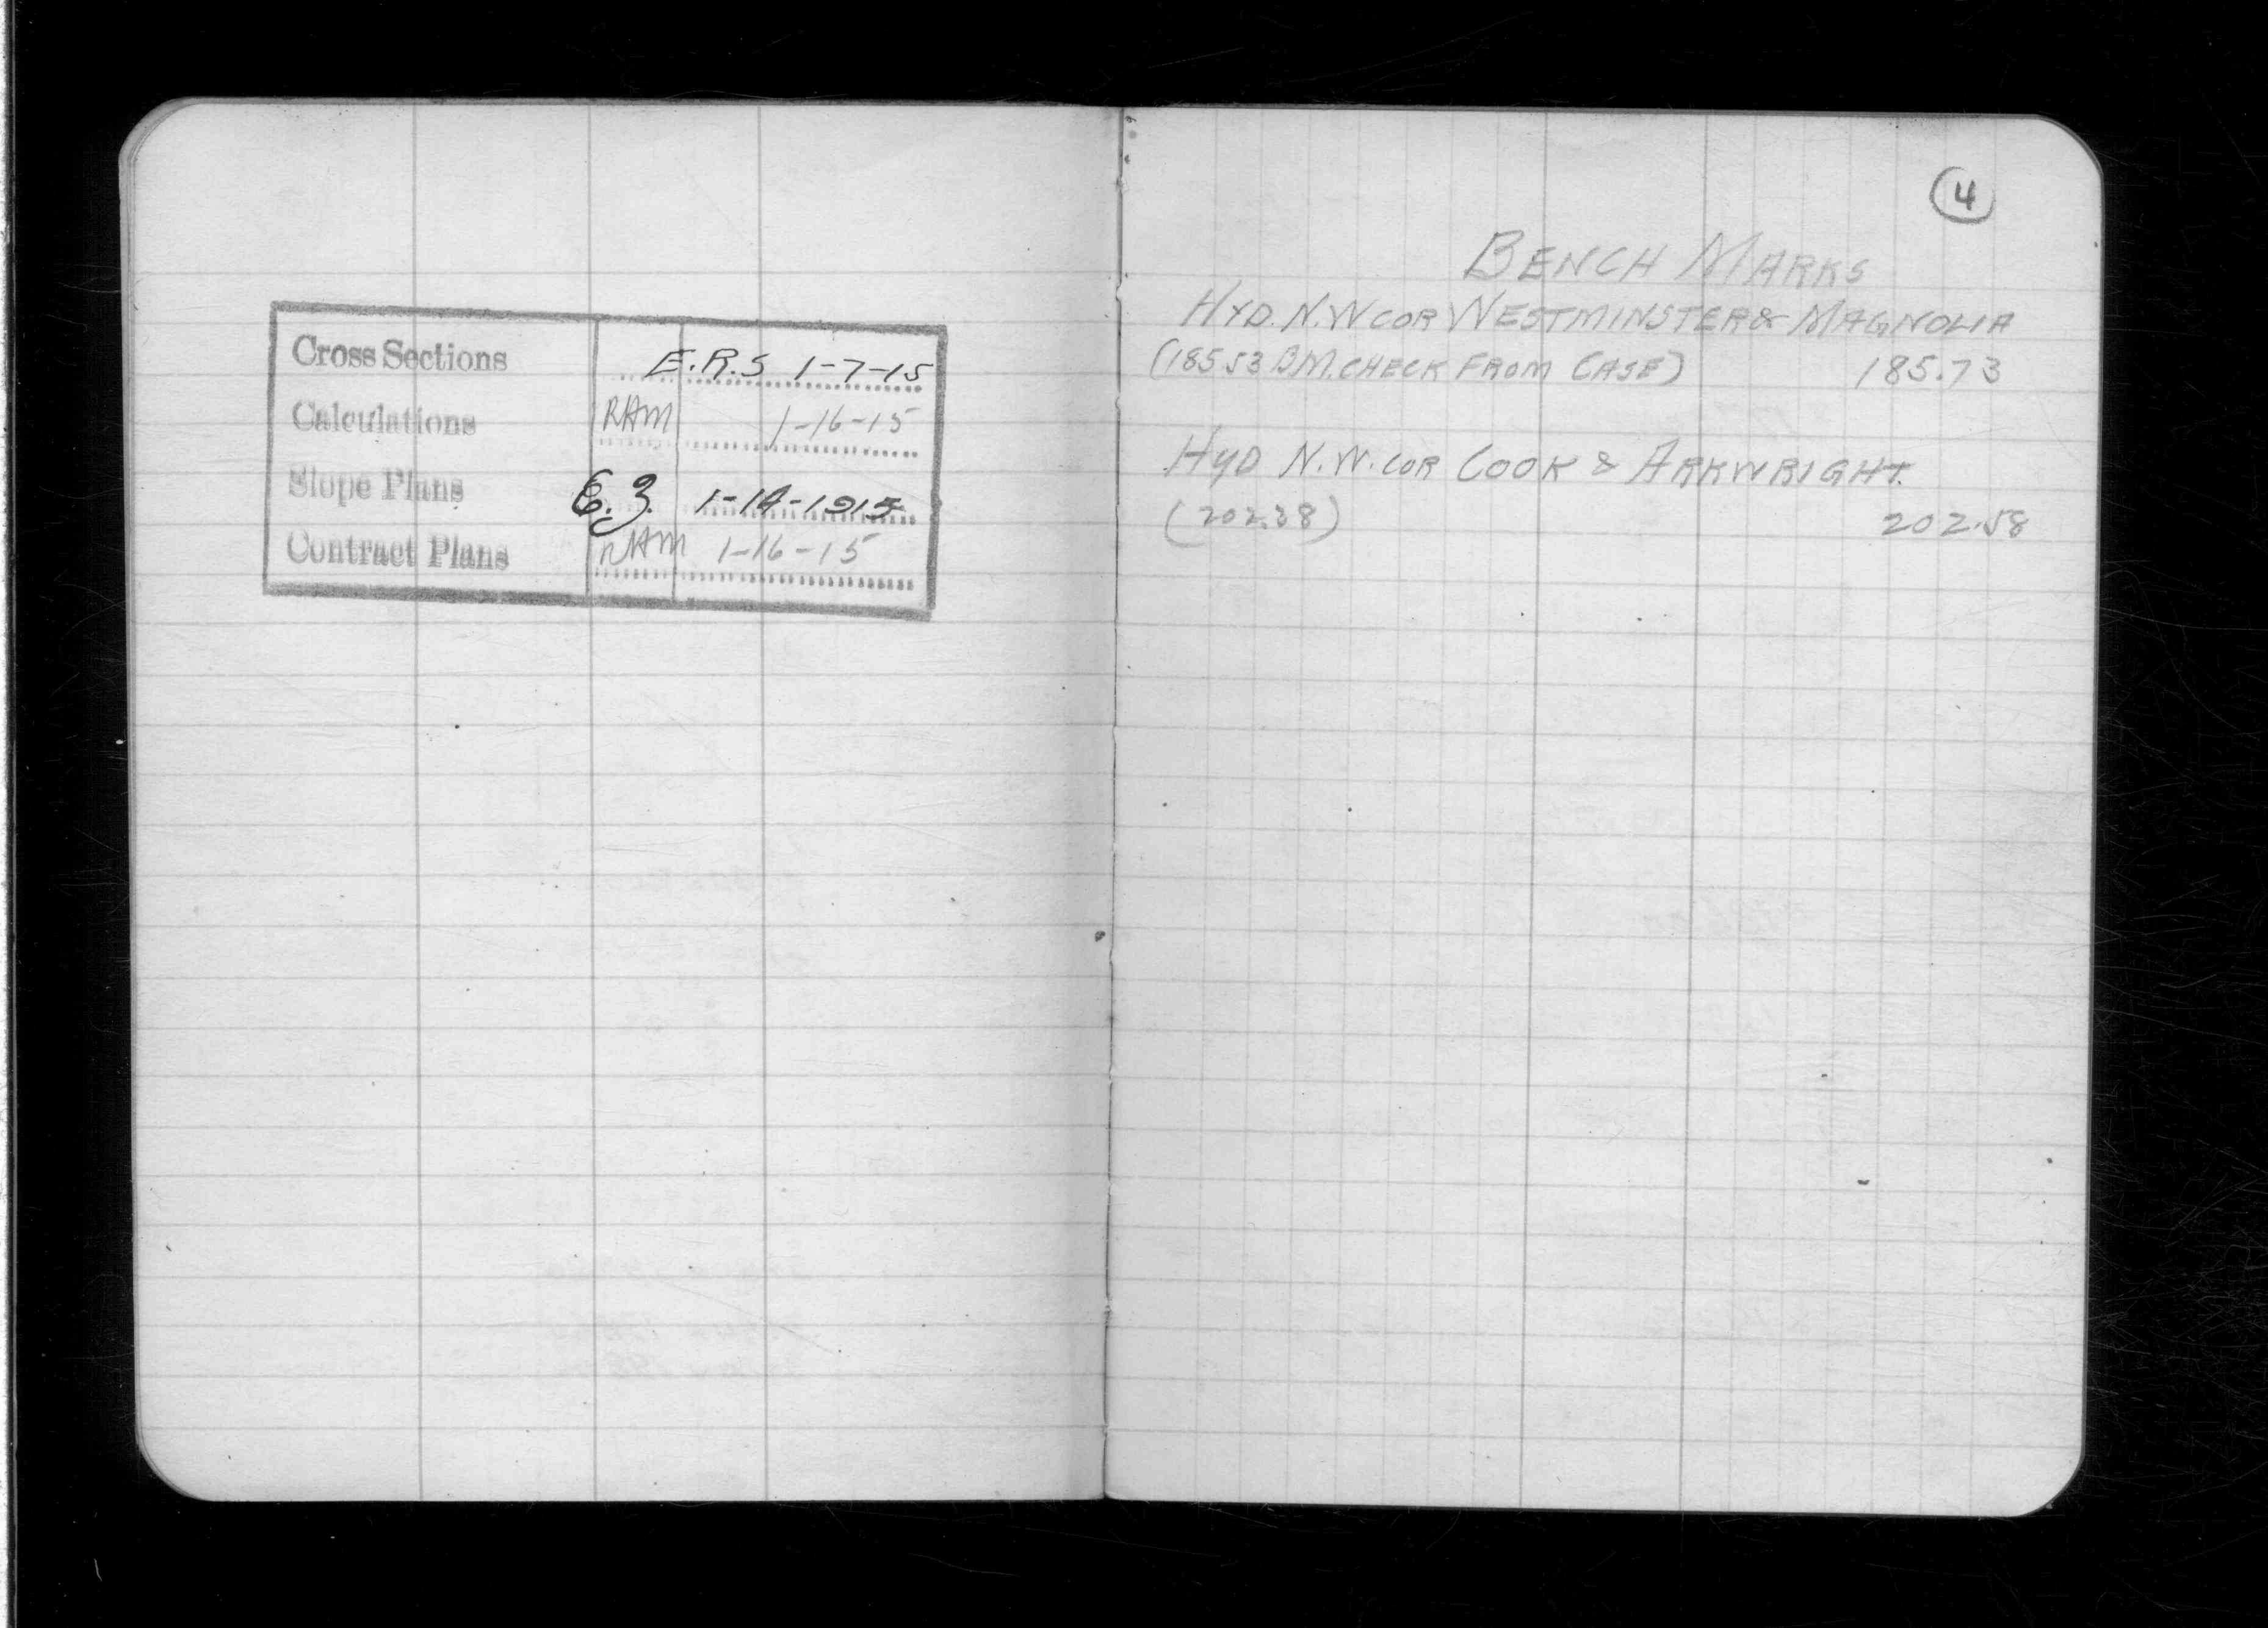 Cross Sections E.R.S 1-7-15
Calculations RAM 1-16-15
Slope Plans 1-14-1915
Contract Plans RAM 1-16-15
4
BENCH MARKS
HYD. N.W COR WESTMINSTER & MAGNOLIA
(185.53 B.M. CHECK FROM CASE) 185.73
HYD N.W. COR COOK & ARKWRIGHT.
(202.38) 202.58